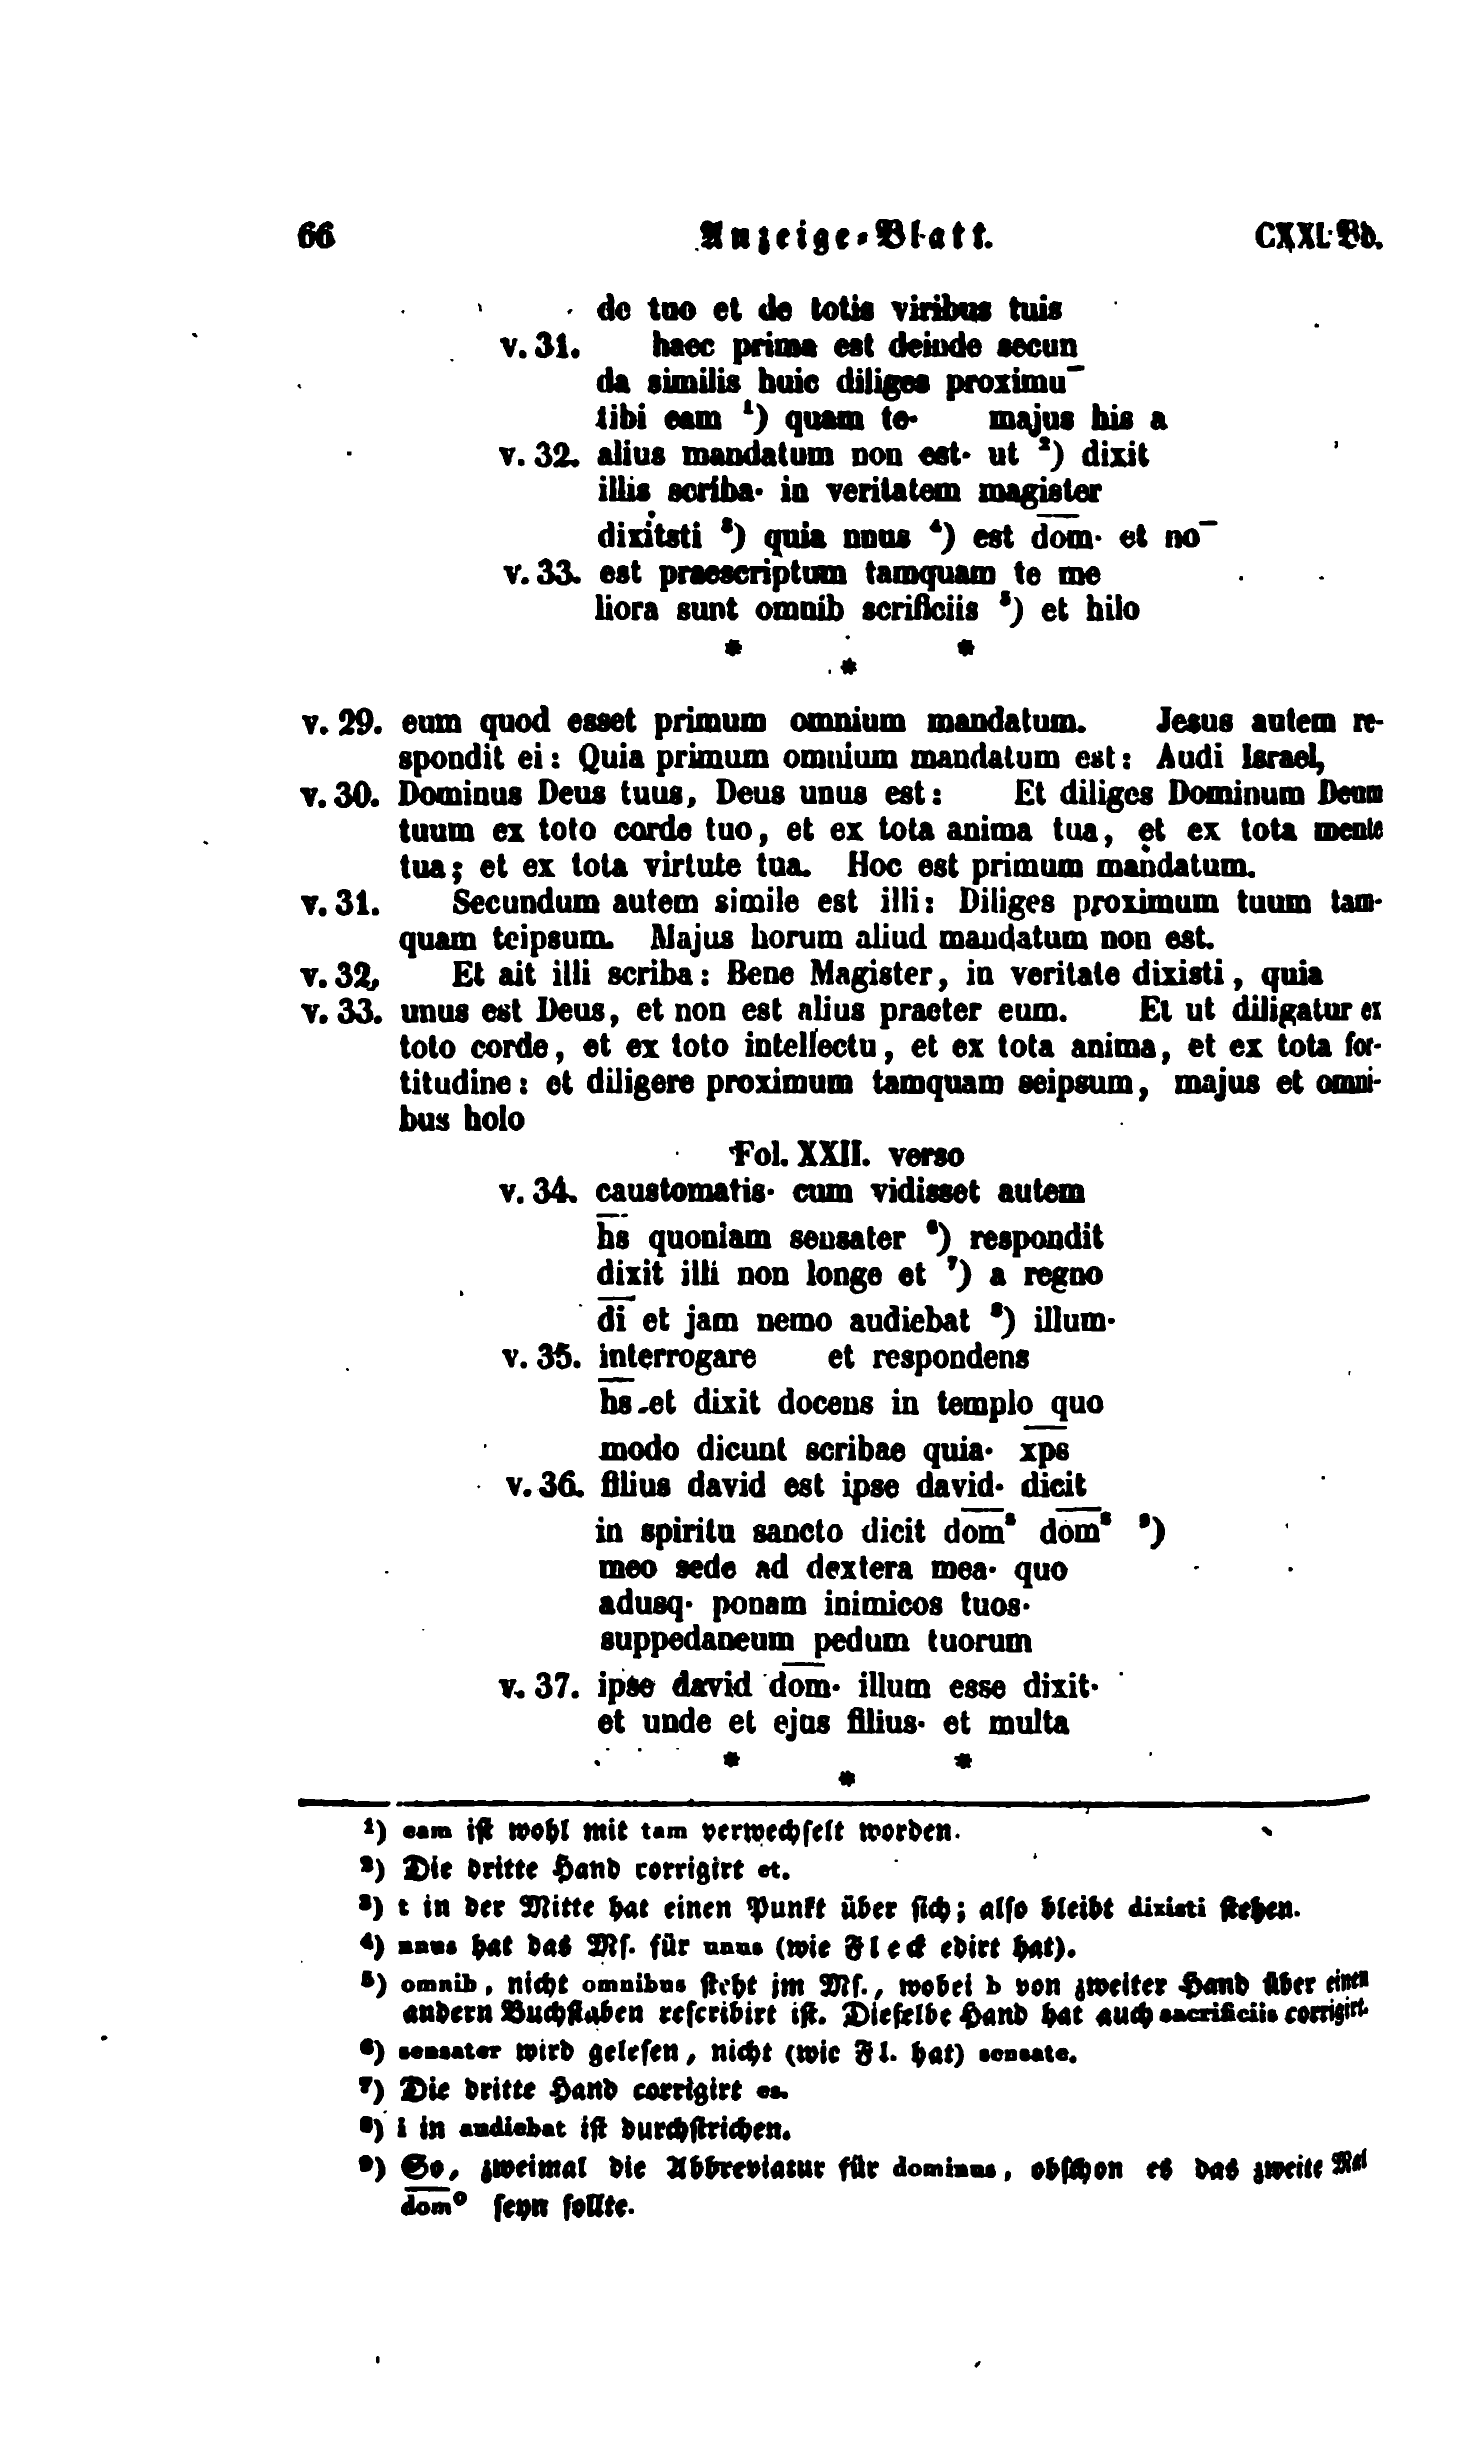 66 Anzeige-Blatt. CXXI. Bd.
de tuo et de totis viribus tuis
v. 31. haec prima est deinde secun
da similis huic diliges proximu‾
tibi eam ¹) quam te· majus his a
v. 32. alius mandatum non est· ut ²) dixit
illis scriba· in veritatem magister
dixiṫsti ³) quia nnus ⁴) est d̅o̅m̅· et no‾
v. 33. est praescriptum tamquam te me
liora sunt omnib scrificiis ⁵) et hilo
* * *
v. 29. eum quod esset primum omnium mandatum. Jesus autem re-
spondit ei: Quia primum omnium mandatum est: Audi Israel,
v. 30. Dominus Deus tuus, Deus unus est: Et diliges Dominum Deum
tuum ex toto corde tuo, et ex tota anima tua, et ex tota mente
tua; et ex tota virtute tua. Hoc est primum mandatum.
v. 31. Secundum autem simile est illi: Diliges proximum tuum tam-
quam teipsum. Majus horum aliud mandatum non est.
v. 32. Et ait illi scriba: Bene Magister, in veritate dixisti, quia
v. 33. unus est Deus, et non est alius praeter eum. Et ut diligatur ex
toto corde, et ex toto intellectu, et ex tota anima, et ex tota for-
titudine: et diligere proximum tamquam seipsum, majus et omni-
bus holo
Fol. XXII. verso
v. 34. caustomatis· cum vidisset autem
h̅s̅ quoniam sensater ⁶) respondit
dixit illi non longe et ⁷) a regno
d̅i̅ et jam nemo audiebat ⁸) illum·
v. 35. interrogare et respondens
h̅s̅ et dixit docens in templo quo
modo dicunt scribae quia· x̅p̅s̅
v. 36. filius david est ipse david· dicit
in spiritu sancto dicit d̅o̅m̅ˢ d̅o̅m̅ˢ ⁹)
meo sede ad dextera mea· quo
adusq· ponam inimicos tuos·
suppedaneum pedum tuorum
v. 37. ipse david d̅o̅m̅· illum esse dixit·
et unde et ejus filius· et multa
* * *
¹) eam ist wohl mit tam verwechselt worden.
²) Die dritte Hand corrigirt et.
³) t in der Mitte hat einen Punkt über sich; also bleibt dixisti stehen.
⁴) nnus hat das Ms. für unus (wie Fleck edirt hat).
⁵) omnib, nicht omnibus steht im Ms., wobei b von zweiter Hand über einen
andern Buchstaben rescribirt ist. Dieselbe Hand hat auch sacrificiis corrigirt.
⁶) sensater wird gelesen, nicht (wie Fl. hat) sensate.
⁷) Die dritte Hand corrigirt es.
⁸) i in audiebat ist durchstrichen.
⁹) So, zweimal die Abbreviatur für dominus, obschon es das zweite Mal
d̅o̅m̅⁰ seyn sollte.